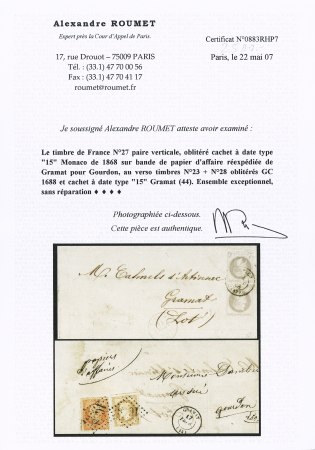 Alexandre ROUMET
Expert près la Cour d'Appel de Paris.
Certificat N°0883RHP7
17, rue Drouot – 75009 PARIS
Tél. : (33.1) 47 70 00 56
Fax : (33.1) 47 70 41 17
roumet@roumet.com
Paris, le 22 mai 07
Je soussigné Alexandre ROUMET atteste avoir examiné :
Le timbre de France N°27 paire verticale, oblitéré cachet à date type
"15" Monaco de 1868 sur bande de papier d'affaire réespédiée de
Gramat pour Gourdon, au verso timbres N°23 + N°28 oblitérés GC
1688 et cachet à date type "15" Gramat (44). Ensemble exceptionnel,
sans réparation ♦ ♦ ♦ ♦
Photographiée ci-dessous.
Cette pièce est authentique.
Gramat
(Lot)
papiers
d'affaires
Monsieur
gourdon